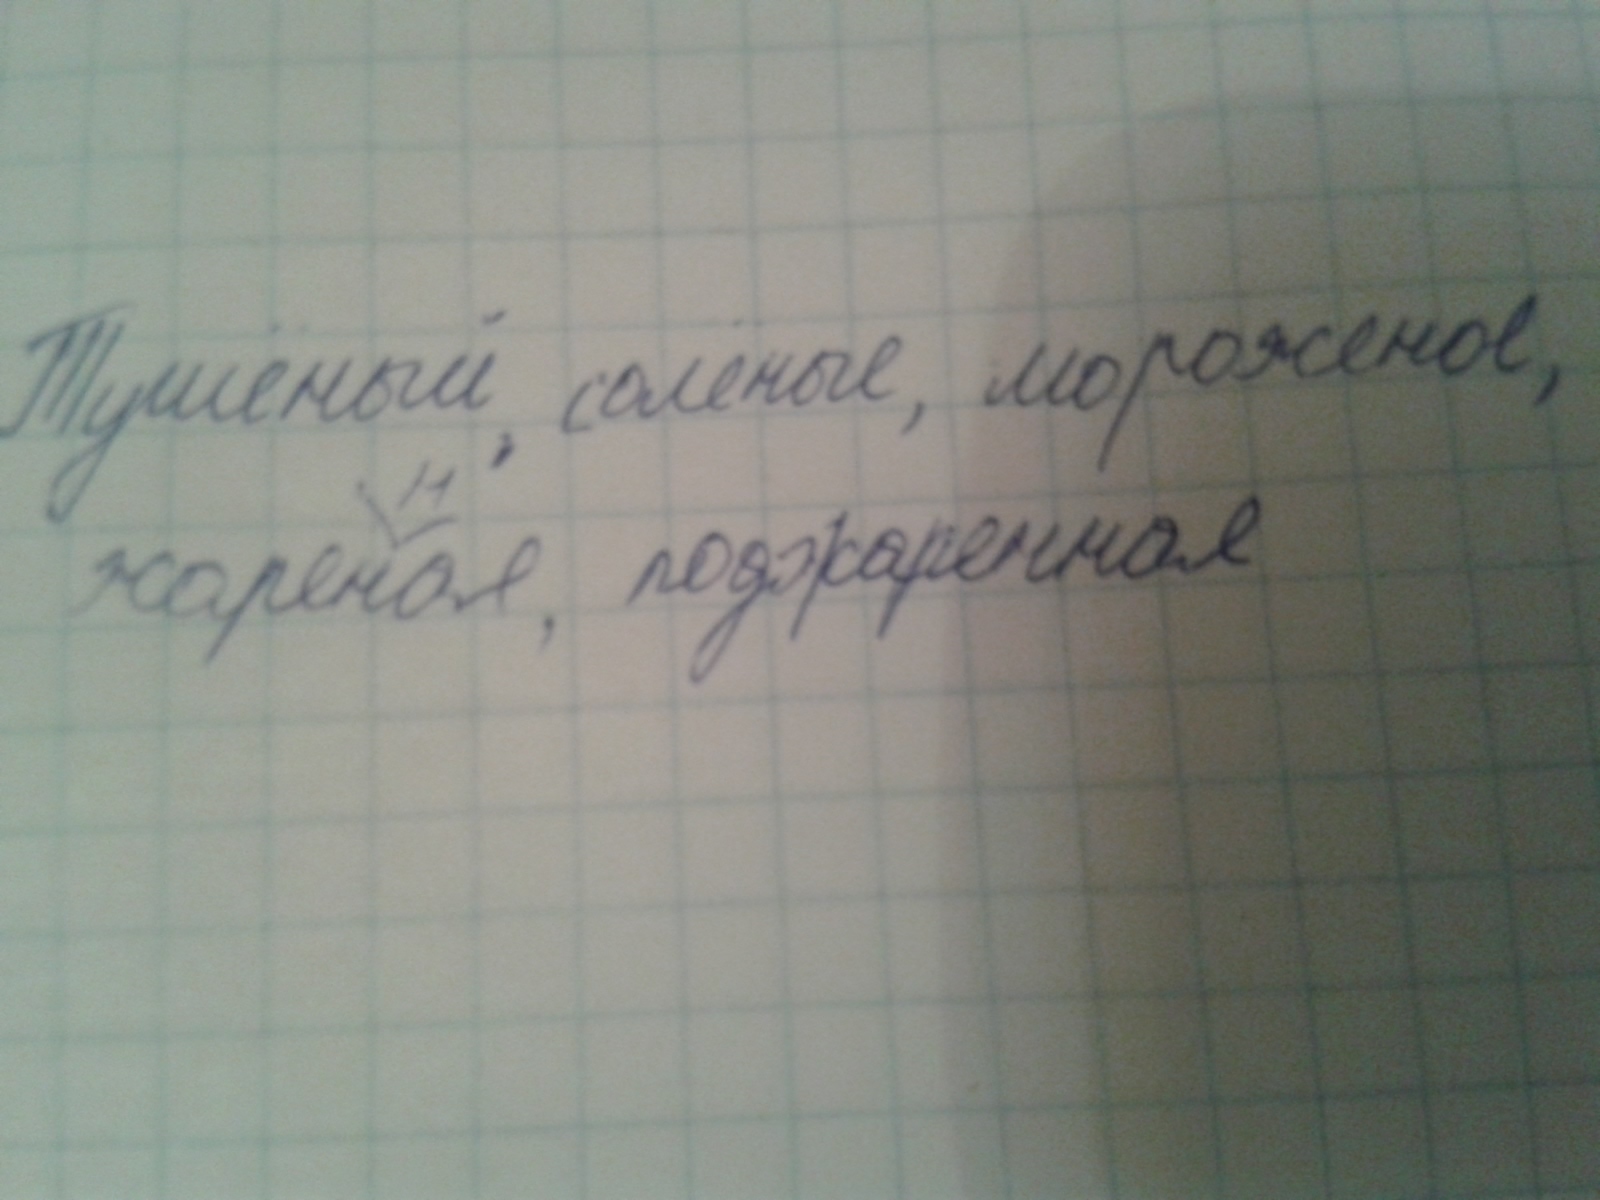 Тушёный, солёные, мороженое,
н
жареная, поджаренная